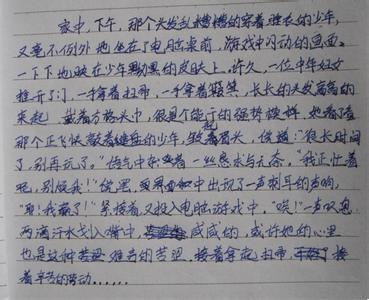 家中,下午,那个头发乱糟糟的穿着睡衣的少年,
又毫不例外地坐在了电脑桌前,游戏中闪动的画面。
一下下地映在少年黝黑的皮肤上。许久,一位中年妇女
推开了门,一手拿着扫帚,一手拿着,长长的头发高高的
束起,戴着方格头巾,很是个能干的强势模样,她看了看
那个正飞快敲着键盘的少年,皱起着眉头,催道:"很长时间
了,别再玩了。"语气中一丝恳求与无奈。"我正忙着
呢,别烦我!"说罢,中出现了一声刺耳的声响,
"耶!我赢了!"紧接着又投入电脑游戏中,"唉!"一声叹息
两滴汗水划入嘴中,咸咸的,或许她的心里
也是这种难言的苦涩,接着拿起扫帚,接
着辛苦的劳动......